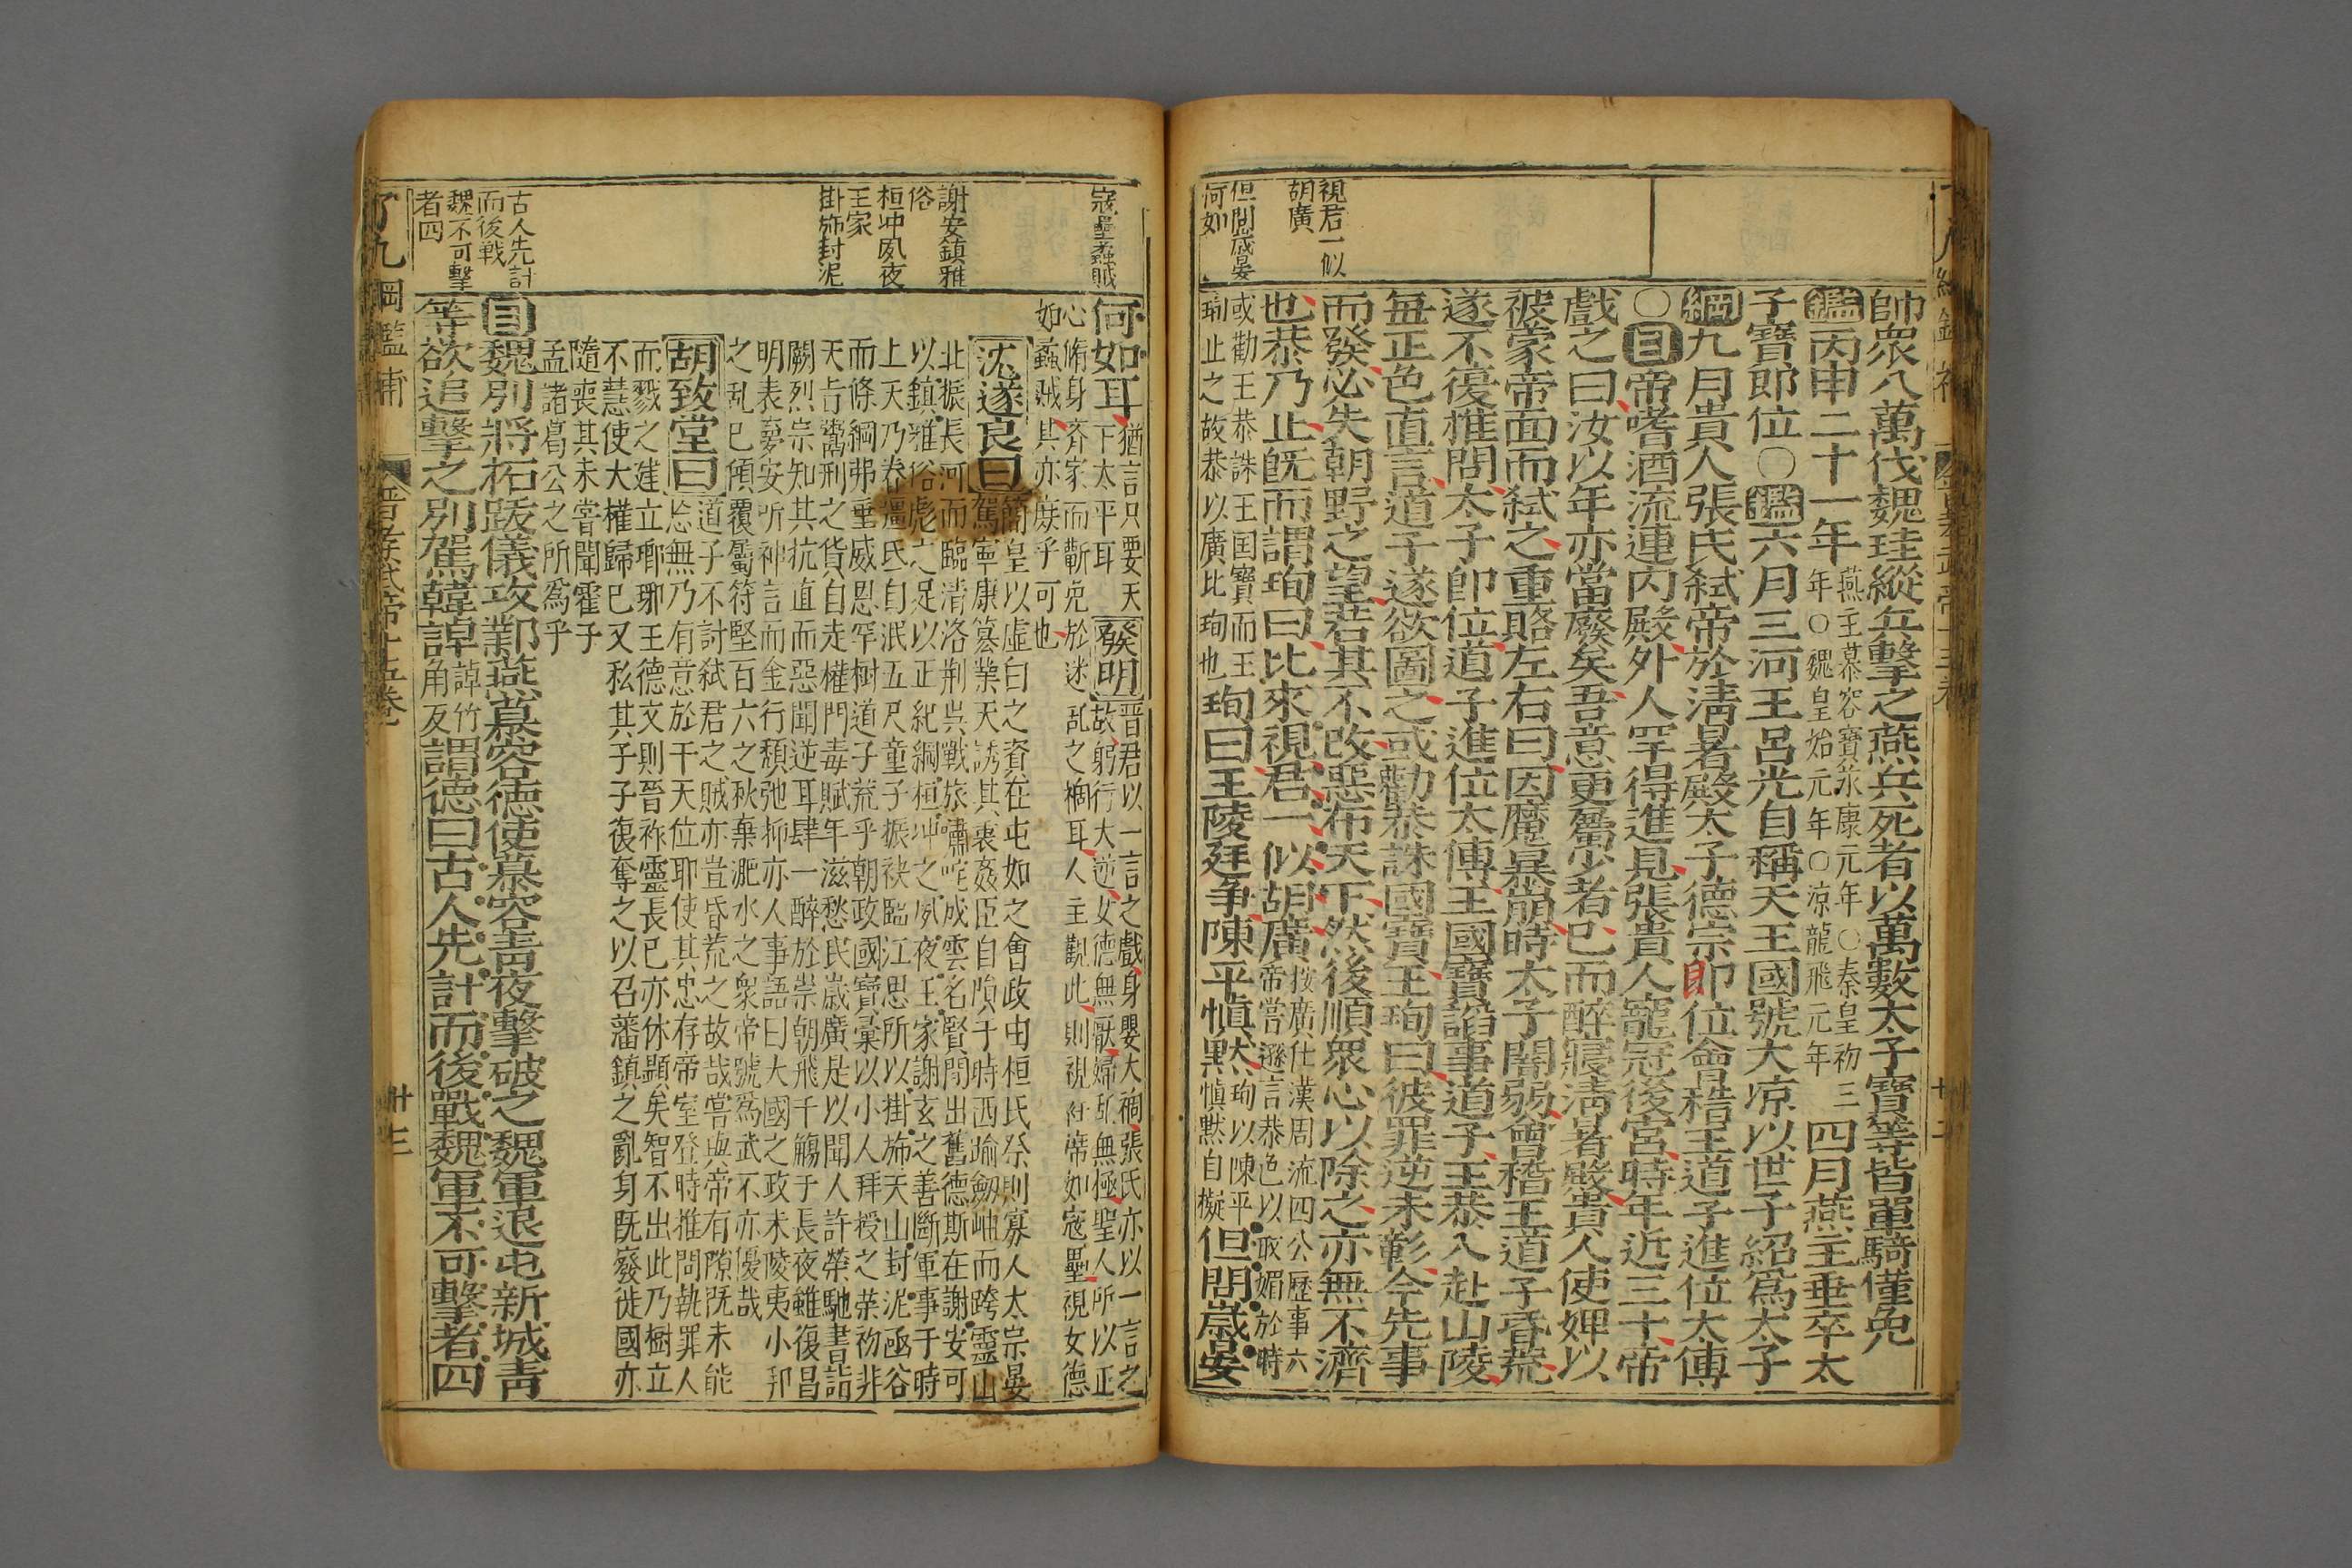 視君一似
胡廣
但問歲晏
何如
帥衆八萬伐魏珪縱兵擊之燕兵死者以萬數太子寶等皆單騎僅免
鑑丙申二十一年燕主慕容寶永康元年○秦皇初三
年○魏皇始元年○涼龍飛元年四月燕主垂卒太
子寶郎位○鑑六月三河王呂光自稱天王國號大凉以世子紹爲太子
綱九月貴人張氏弑帝於淸暑殿太子德宗即位會稽王道子進位太傅
○目帝嗜酒流連内殿外人罕得進見張貴人寵冠後宮時年近三十帝
戲之曰汝以年亦當廢矣吾意更屬少者已而醉寢淸暑殿貴人使婢以
被蒙帝面而弑之重賂左右曰因魘暴崩時太子闇弱會稽王道子昏荒
遂不復推問太子卽位道子進位太傅王國寶諂事道子王恭入赴山陵
每正色直言道子遂欲圖之或勸恭誅國寶王珣曰彼罪逆未彰今先事
而發必失朝野之望若其不改惡布天下然後順衆心以除之亦無不濟
也恭乃止旣而謂珣曰比來視君一似胡廣按廣仕漢周流四公歷事六
帝嘗遜言恭色以取媚於時
或勸王恭誅王国寶而王
珣止之故恭以廣比珣也珣曰王陵廷争陳平愼黙珣以陳平
愼黙自擬但問歲晏
寇壘蟊賊
謝安鎮雅
俗
桓冲夙夜
王家
掛斾封泥
古人先計
而後戰
魏不可擊
者四
何如耳猶言只要天
下太平耳發明晋君以一言之戲身嬰大禍張氏亦以一言之
故躬行大逆女德無厭婦亂無極聖人所以正
心脩身齊家而蘄免於迷乱之禍耳人主觀此則視衽席如寇壘視女德
如蟊賊其亦庶乎可也
沈遂良曰簡皇以虛白之資在屯如之會政由桓氏祭則寡人太宗晏
駕寧康簒業天誘其衷姦臣自隕于時西踰劒岫而跨靈山
北振長河而臨淸洛荆吳戰旅嘯咤成雲名賢間出舊德斯在謝安可
以鎮雅俗彪之足以正紀綱桓冲之夙夜王家謝玄之善斷軍事于時
上天乃眷彊氏自泯五尺童子振袂臨江思所以掛斾天山封泥函谷
而條綱弗垂威恩罕樹道子荒乎朝政國寶彙以小人拜授之榮初非
天旨鬻刑之貨自走權門毒賦年滋愁民歲廣是以聞人許榮馳書詣
闕烈宗知其抗直而惡聞逆耳肆一醉於崇朝飛千觴于長夜雖復昌
明表夢安听神言而金行頹弛抑亦人事語曰大國之政未陵夷小邦
之乱已傾覆屬符堅百六之秋棄淝水之衆帝號爲武不亦優哉
胡致堂曰道子不討弑君之賊亦豈昏荒之故哉嘗與帝有隙既未能
忿無乃有意於干天位耶使其忠存帝室登時推問執罪人
而戮之建立瑯琊王德文則晉祚靈長已亦休顯矣智不出此乃樹立
不慧使大權歸已又私其子子復奪之以召藩鎮之亂身既廢徙國亦
隨喪其未嘗聞霍子
孟諸葛公之所爲乎
目魏別將柘跋儀攻鄴燕慕容德使慕容靑夜擊破之魏軍退屯新城靑
等欲追擊之別駕韓𧨳𧨳竹
角反謂德曰古人先計而後戰魏軍不可擊者四
了凡綱鑑補 晉孝武帝十五卷 卄三